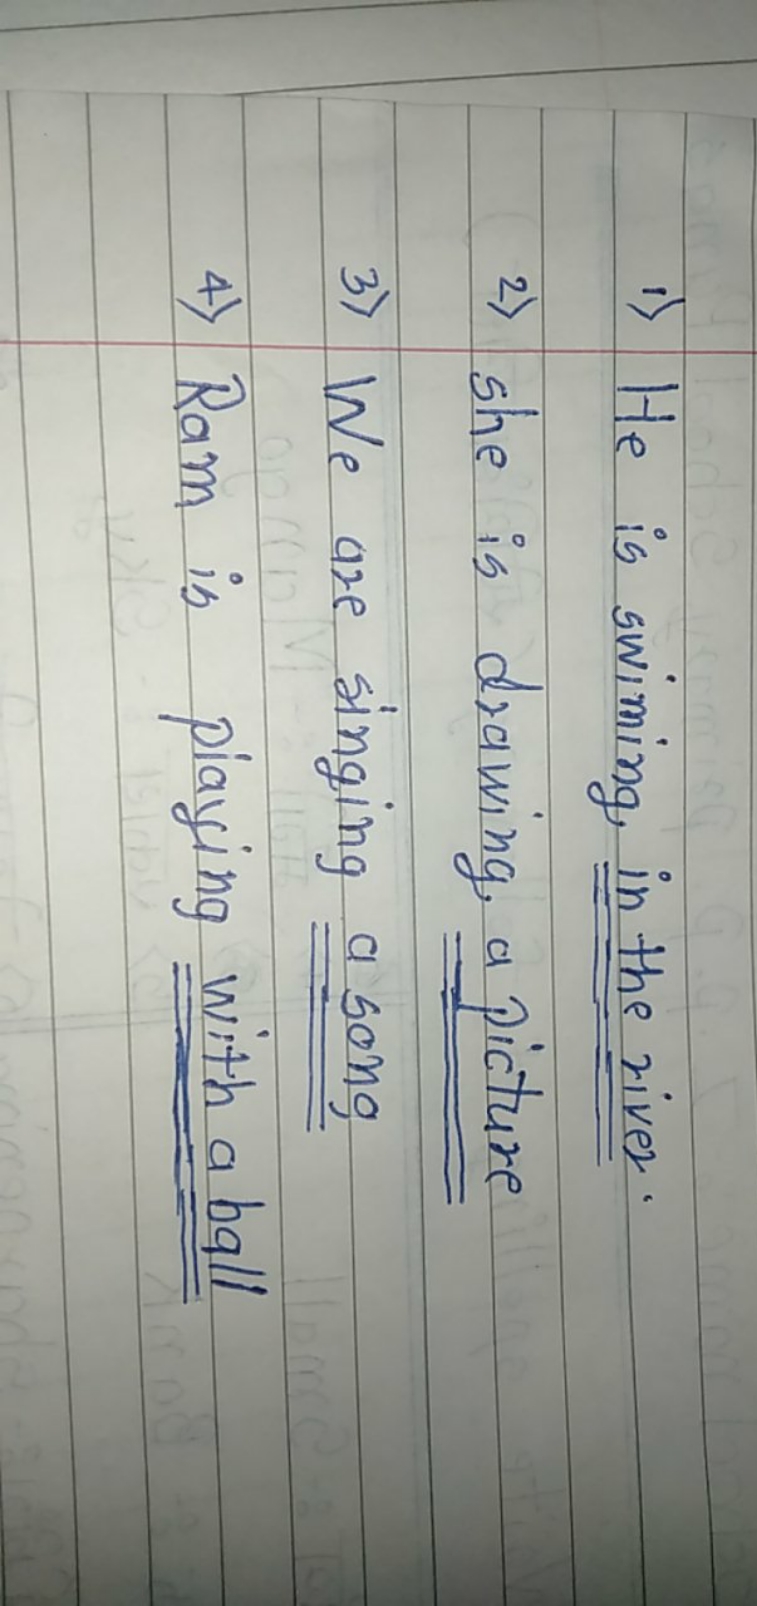 1) He is swiming, in the river.
2) she is drawing, a picture
3) We are singing a song
4) Ram is playing with a ball